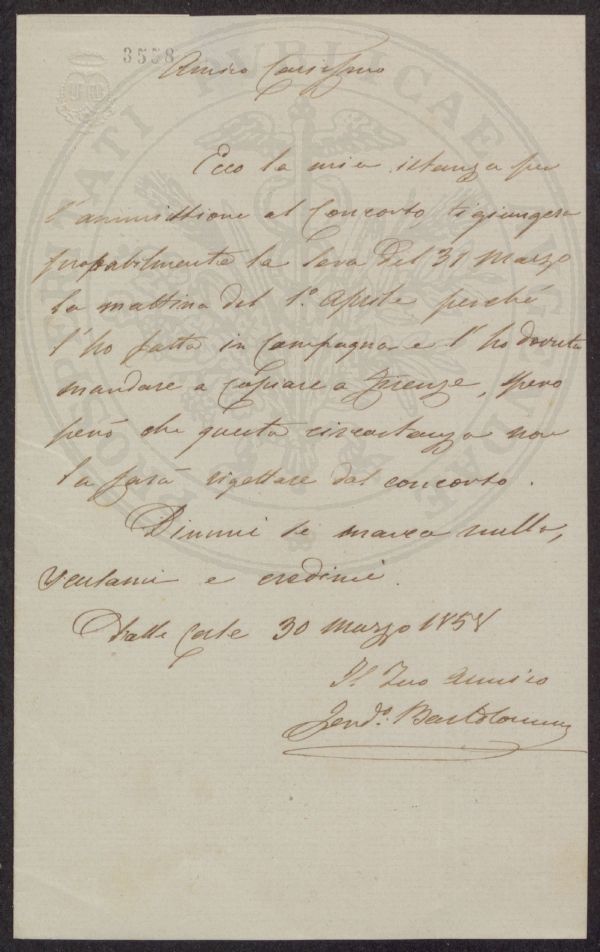 3558
Amico Carissimo
Ecco la mia istanza per
l'ammissione al Concorso, ti giungerà
probabilmente la sera del 31 Marzo
la mattina del 1.º Aprile perché
l'ho fatta in Campagna e l'ho dovuta
mandare a copiare a Firenze, spero
però che questa circostanza non
la farà rigettare dal concorso.
Dimmi se manca nulla,
scusami e credimi.
Dalle 30 Marzo 1858
Il Tuo Amico
Ferd.º Bartolommei
PROSPERITATI PUBLICAE AUGENDAE